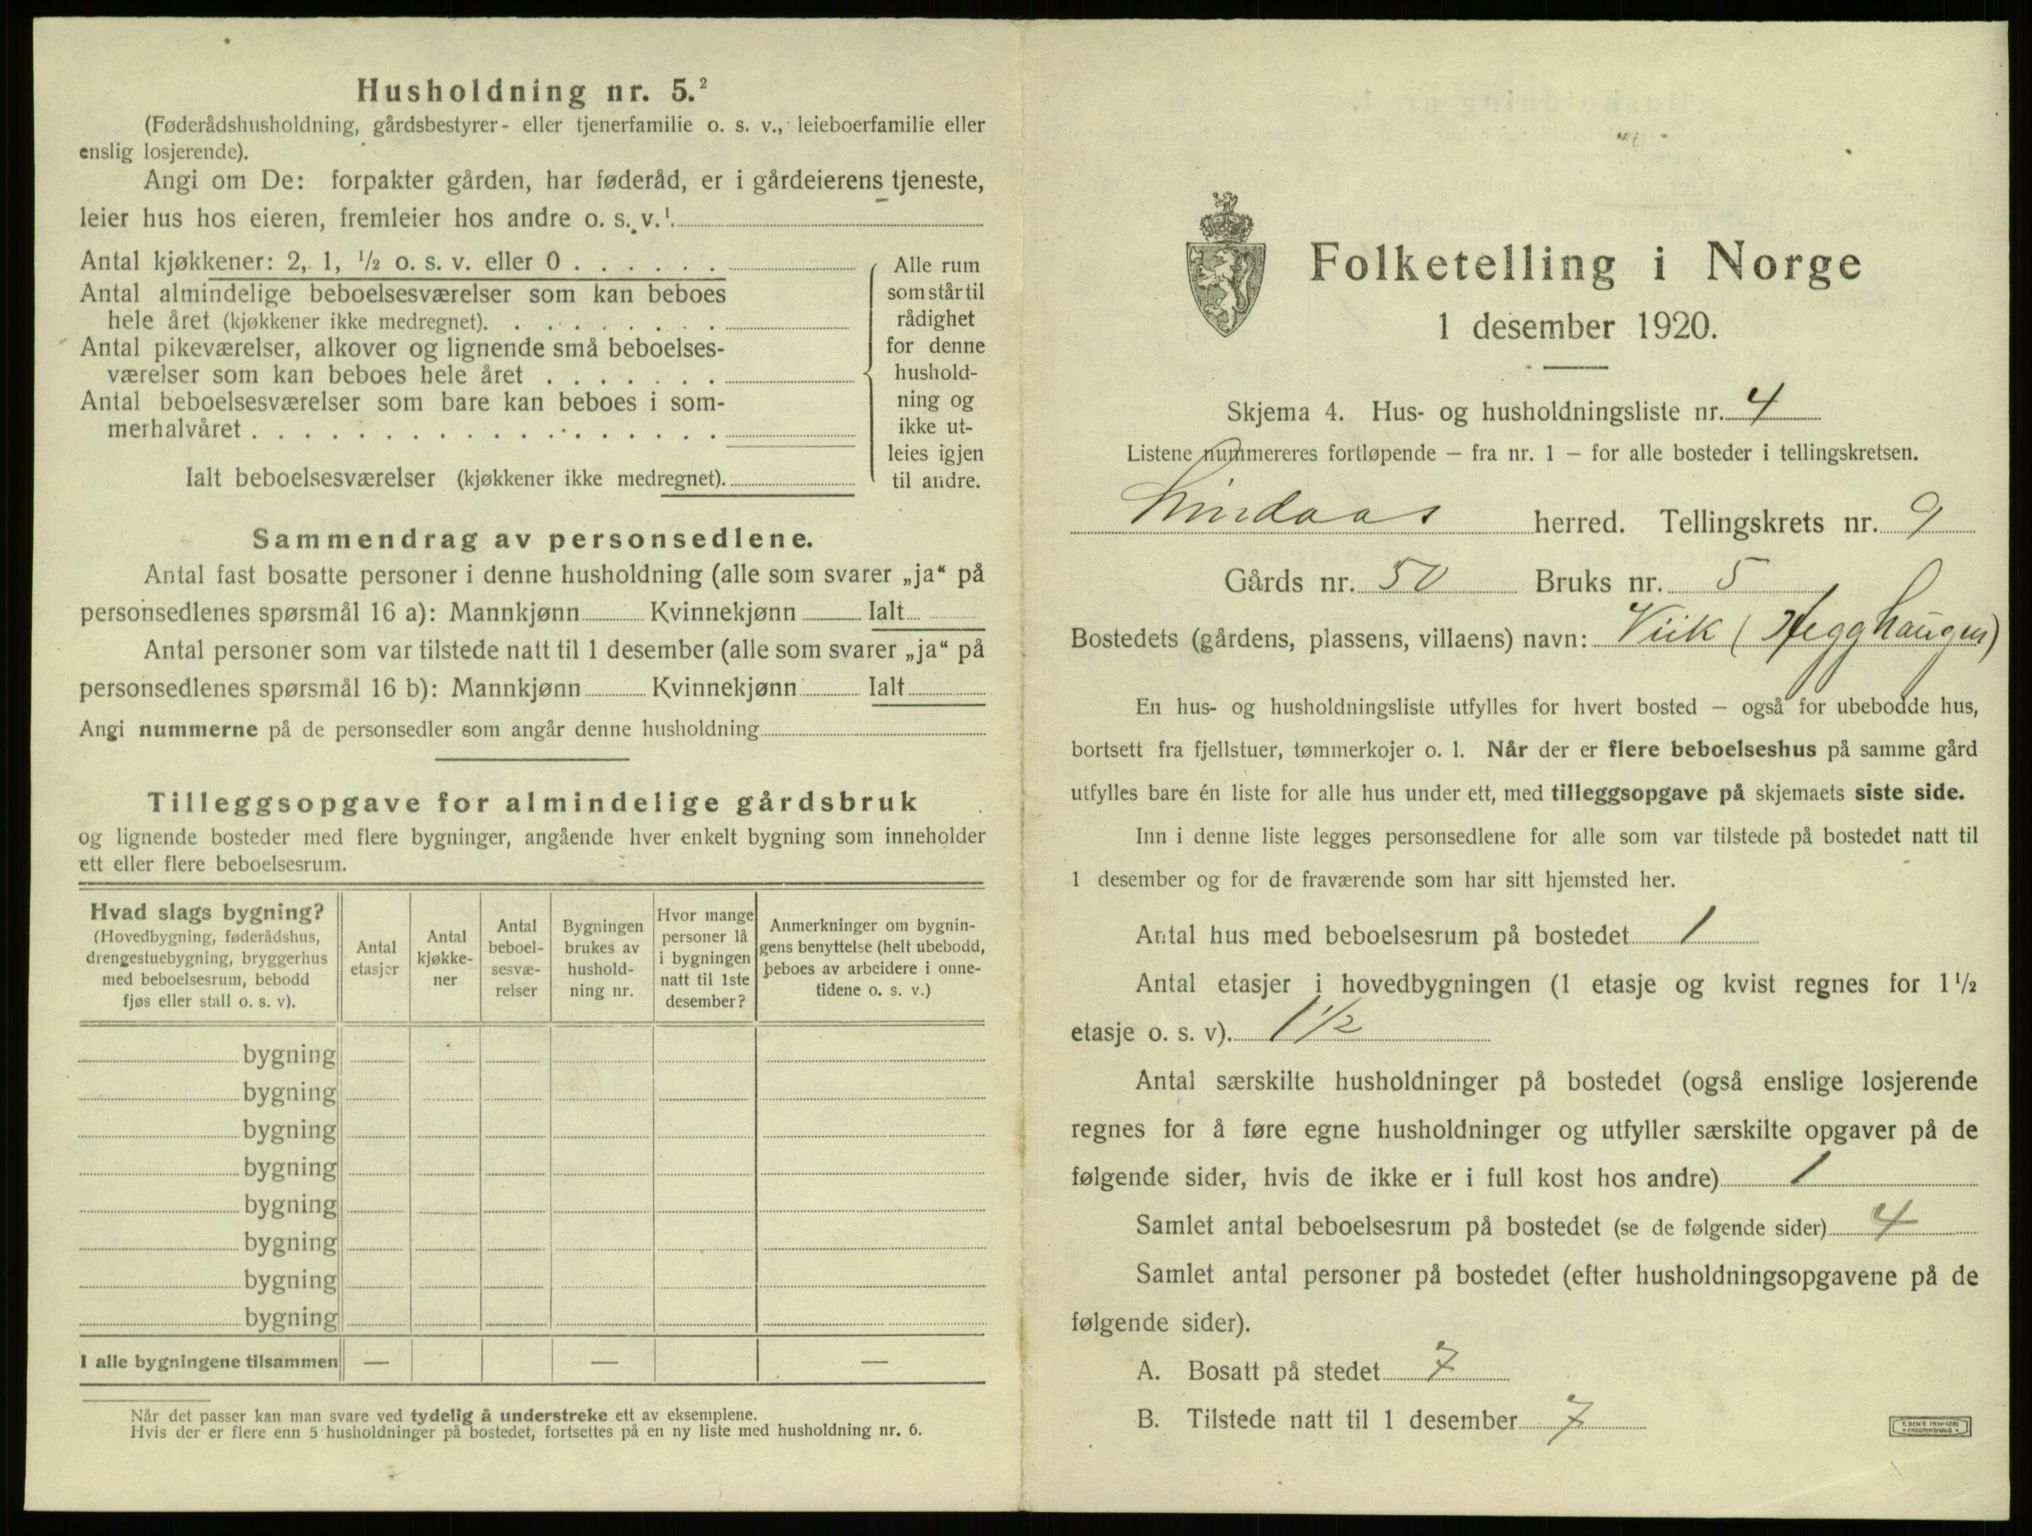 Husholdning nr. 5.²
(Føderådshusholdning, gårdsbestyrer- eller tjenerfamilie o. s. v., leieboerfamilie eller
enslig losjerende).
Angi om De: forpakter gården, har føderåd, er i gårdeierens tjeneste,
leier hus hos eieren, fremleier hos andre o. s. v.¹
Antal kjøkkener: 2, 1, ½ o. s. v. eller 0
Antal almindelige beboelsesværelser som kan beboes
hele året (kjøkkener ikke medregnet).
Antal pikeværelser, alkover og lignende små beboelses-
værelser som kan beboes hele året
Antal beboelsesværelser som bare kan beboes i som-
merhalvåret
Ialt beboelsesværelser (kjøkkener ikke medregnet).
Alle rum
som står til
rådighet
for denne
hushold-
ning og
ikke ut-
leies igjen
til andre.
Sammendrag av personsedlene.
Antal fast bosatte personer i denne husholdning (alle som svarer „ja“ på
personsedlenes spørsmål 16 a): Mannkjønn Kvinnekjønn Ialt
Antal personer som var tilstede natt til 1 desember (alle som svarer „ja“ på
personsedlenes spørsmål 16 b): Mannkjønn Kvinnekjønn Ialt
Angi nummerne på de personsedler som angår denne husholdning
Tilleggsopgave for almindelige gårdsbruk
og lignende bosteder med flere bygninger, angående hver enkelt bygning som inneholder
ett eller flere beboelsesrum.
Hvad slags bygning?
(Hovedbygning, føderådshus,
drengestuebygning, bryggerhus
med beboelsesrum, bebodd
fjøs eller stall o. s. v).
Antal
etasjer
Antal
kjøkke-
ner
Antal
beboel-
sesvæ-
relser
Bygningen
brukes av
hushold-
ning nr.
Hvor mange
personer lå
i bygningen
natt til 1ste
desember?
Anmerkninger om bygnin-
gens benyttelse (helt ubebodd,
beboes av arbeidere i onne-
tidene o. s. v.)
bygning
bygning
bygning
bygning
bygning
bygning
bygning
bygning
I alle bygningene tilsammen — — —
Når det passer kan man svare ved tydelig å understreke ett av eksemplene.
Hvis der er flere enn 5 husholdninger på bostedet, fortsettes på en ny liste med husholdning nr. 6.
Folketelling i Norge
1 desember 1920.
Skjema 4. Hus- og husholdningsliste nr. 4
Listene nummereres fortløpende — fra nr. 1 — for alle bosteder i tellingskretsen.
Lindaas herred. Tellingskrets nr. 9
Gårds nr. 50 Bruks nr. 5
Bostedets (gårdens, plassens, villaens) navn: Viik (Hegghaugen)
En hus- og husholdningsliste utfylles for hvert bosted — også for ubebodde hus,
bortsett fra fjellstuer, tømmerkojer o. l. Når der er flere beboelseshus på samme gård
utfylles bare én liste for alle hus under ett, med tilleggsopgave på skjemaets siste side.
Inn i denne liste legges personsedlene for alle som var tilstede på bostedet natt til
1 desember og for de fraværende som har sitt hjemsted her.
Antal hus med beboelsesrum på bostedet 1
Antal etasjer i hovedbygningen (1 etasje og kvist regnes for 1½
etasje o. s. v). 1½
Antal særskilte husholdninger på bostedet (også enslige losjerende
regnes for å føre egne husholdninger og utfyller særskilte opgaver på de
følgende sider, hvis de ikke er i full kost hos andre) 1
Samlet antal beboelsesrum på bostedet (se de følgende sider) 4
Samlet antal personer på bostedet (efter husholdningsopgavene på de
følgende sider).
A. Bosatt på stedet 7
B. Tilstede natt til 1 desember 7